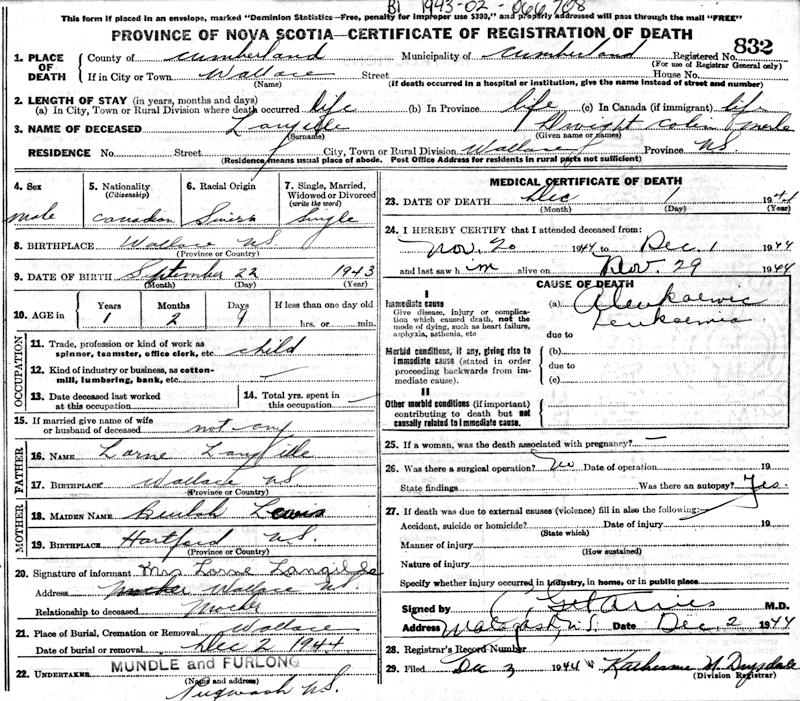 B1 1943-02-066708
This form if placed in an envelope, marked "Dominion Statistics—Free, penalty for improper use $300," and properly addressed will pass through the mail "FREE"
PROVINCE OF NOVA SCOTIA—CERTIFICATE OF REGISTRATION OF DEATH
832
1. PLACE OF DEATH County of Cumberland Municipality of Cumberland Registered No.
(For use of Registrar General only)
If in City or Town Wallace Street House No.
(Name) (If death occurred in a hospital or institution, give the name instead of street and number)
2. LENGTH OF STAY (in years, months and days)
(a) In City, Town or Rural Division where death occurred life (b) In Province life (c) In Canada (if immigrant) life
3. NAME OF DECEASED Langille Dwight Colin
(Surname) (Given name or names)
RESIDENCE No. Street City, Town or Rural Division Wallace Province NS
(Residence means usual place of abode. Post Office Address for residents in rural parts not sufficient)
4. Sex male
5. Nationality (Citizenship) Canadian
6. Racial Origin Swiss
7. Single, Married, Widowed or Divorced (write the word) Single
8. BIRTHPLACE Wallace NS
(Province or Country)
9. DATE OF BIRTH September 22 1943
(Month) (Day) (Year)
10. AGE in Years Months Days If less than one day old
1 2 9 hrs. or min.
OCCUPATION
11. Trade, profession or kind of work as spinner, teamster, office clerk, etc. child
12. Kind of industry or business, as cotton-mill, lumbering, bank, etc. —
13. Date deceased last worked at this occupation
14. Total yrs. spent in this occupation —
15. If married give name of wife or husband of deceased not any
FATHER
16. NAME Lorne Langille
17. BIRTHPLACE Wallace NS
(Province or Country)
MOTHER
18. MAIDEN NAME Beulah Lewis
19. BIRTHPLACE Hartford N.S.
(Province or Country)
20. Signature of informant Mrs Lorne Langille
Address Wallace NS
Relationship to deceased Mother
21. Place of Burial, Cremation or Removal Wallace
Date of burial or removal Dec 2 1944
22. UNDERTAKER MUNDLE and FURLONG
(Name and address)
Pugwash NS.
MEDICAL CERTIFICATE OF DEATH
23. DATE OF DEATH Dec 1 1944
(Month) (Day) (Year)
24. I HEREBY CERTIFY that I attended deceased from:
Nov. 20 1944 to Dec. 1 1944
and last saw him alive on Nov. 29 1944
CAUSE OF DEATH
I
Immediate cause (a) Aleukaemic
Give disease, injury or complication which caused death, not the mode of dying, such as heart failure, asphyxia, asthenia, etc
Leukaemia
due to
Morbid conditions, if any, giving rise to immediate cause (stated in order proceeding backwards from immediate cause).
(b)
due to
(c)
II
Other morbid conditions (if important) contributing to death but not causally related to immediate cause.
25. If a woman, was the death associated with pregnancy? —
26. Was there a surgical operation? No Date of operation 19
State findings Was there an autopsy? Yes
27. If death was due to external causes (violence) fill in also the following:
Accident, suicide or homicide? Date of injury 19
(State which)
Manner of injury
(How sustained)
Nature of injury
Specify whether injury occurred in industry, in home, or in public place
Signed by M.D.
Address N.S. Date Dec. 2 1944
28. Registrar's Record Number
29. Filed Dec 2 1944 Katherine M Drysdale
(Division Registrar)